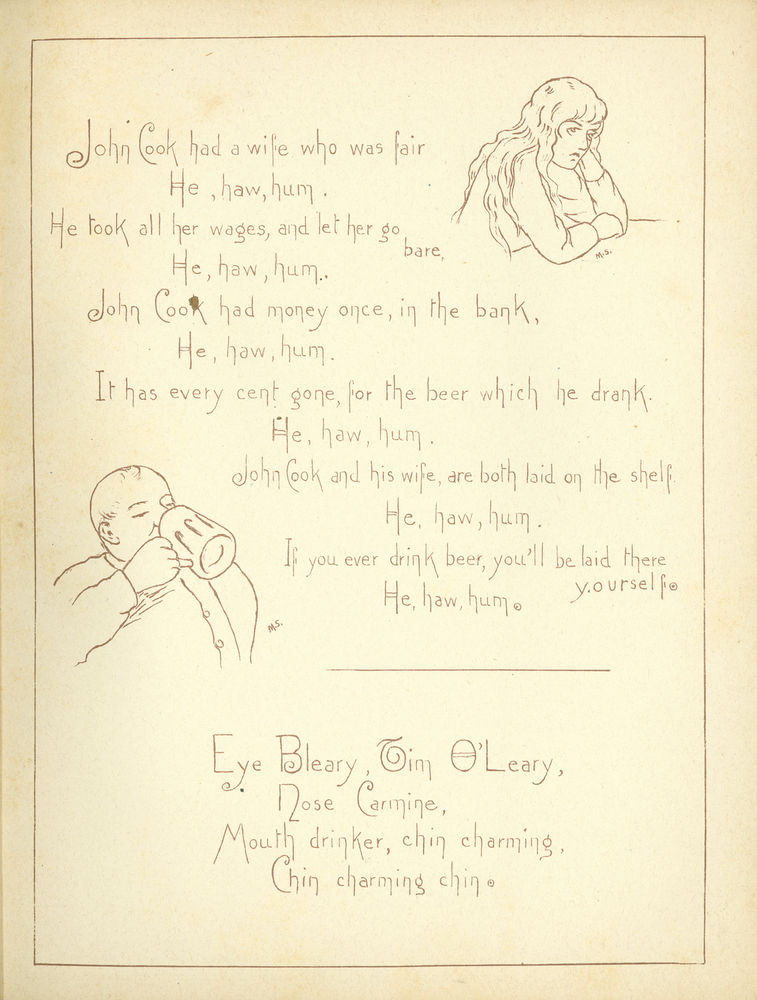 John Cook had a wife who was fair
He, haw, hum.
He took all her wages, and let her go
bare,
He, haw, hum.
John Cook had money once, in the bank,
He, haw, hum.
It has every cent gone, for the beer which he drank.
He, haw, hum.
John Cook and his wife, are both laid on the shelf.
He, haw, hum.
If you ever drink beer, you'll be laid there
yourself.
He, haw, hum.
M.S.
M.S.
Eye Bleary, Tim O'Leary,
Nose Carmine,
Mouth drinker, chin charming,
Chin charming chin.